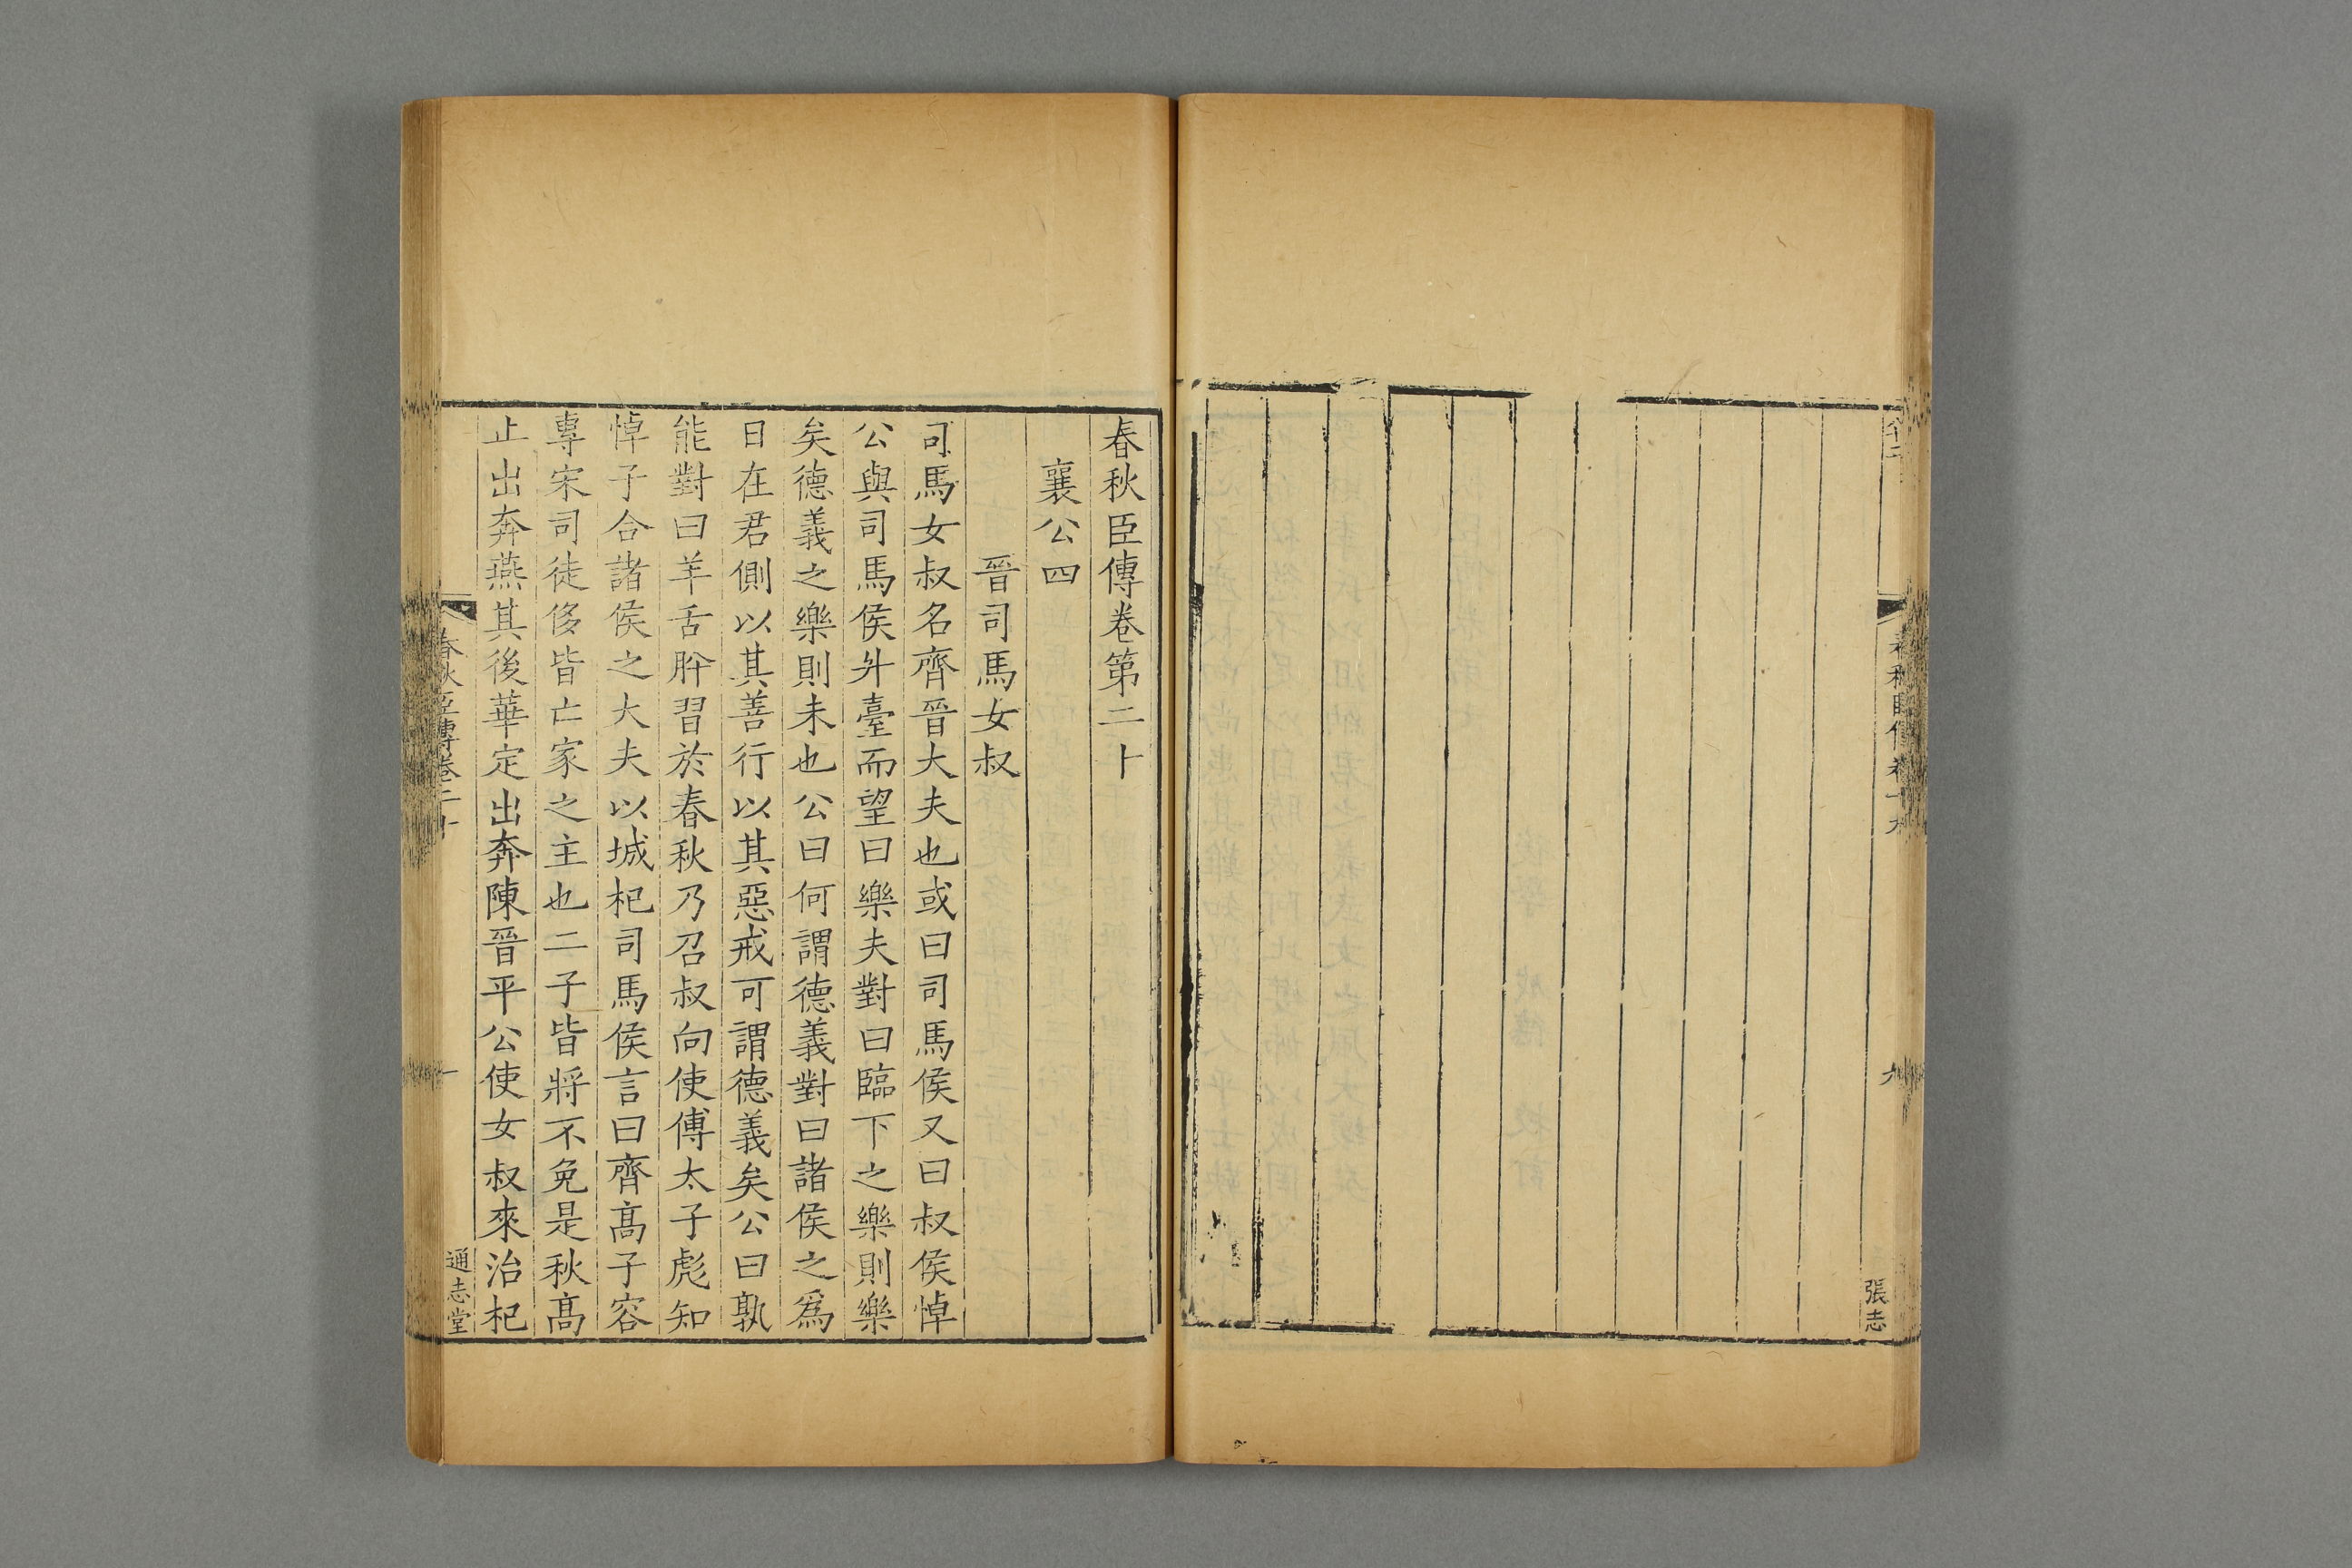 春秋臣傳卷十九
九
張志
春秋臣傳卷第二十
襄公四
晉司馬女叔
司馬女叔名齊晉大夫也或曰司馬侯又曰叔侯悼
公與司馬侯升臺而望曰樂夫對曰臨下之樂則樂
矣德義之樂則未也公曰何謂德義對曰諸侯之爲
日在君側以其善行以其惡戒可謂德義矣公曰孰
能對曰羊舌肸習於春秋乃召叔向使傅太子彪知
悼子合諸侯之大夫以城杞司馬侯言曰齊髙子容
專宋司徒侈皆亡家之主也二子皆將不免是秋髙
止出奔燕其後華定出奔陳晉平公使女叔來治杞
春秋臣傳卷二十
一
通志堂